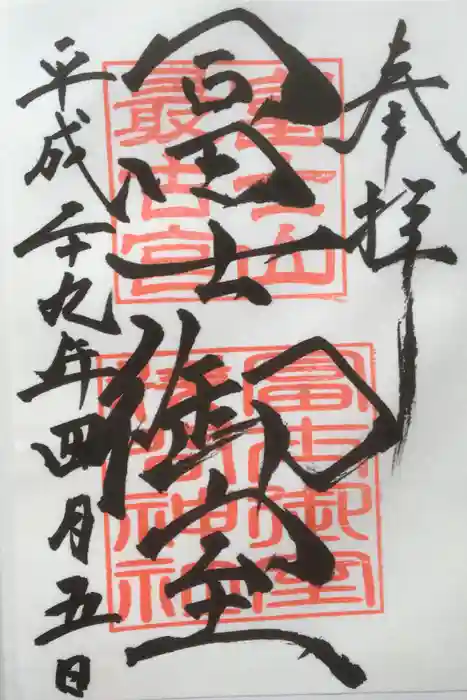 奉拝
富士山
最古宮
富士御室
富士御室
淺間神社
平成二十九年四月五日